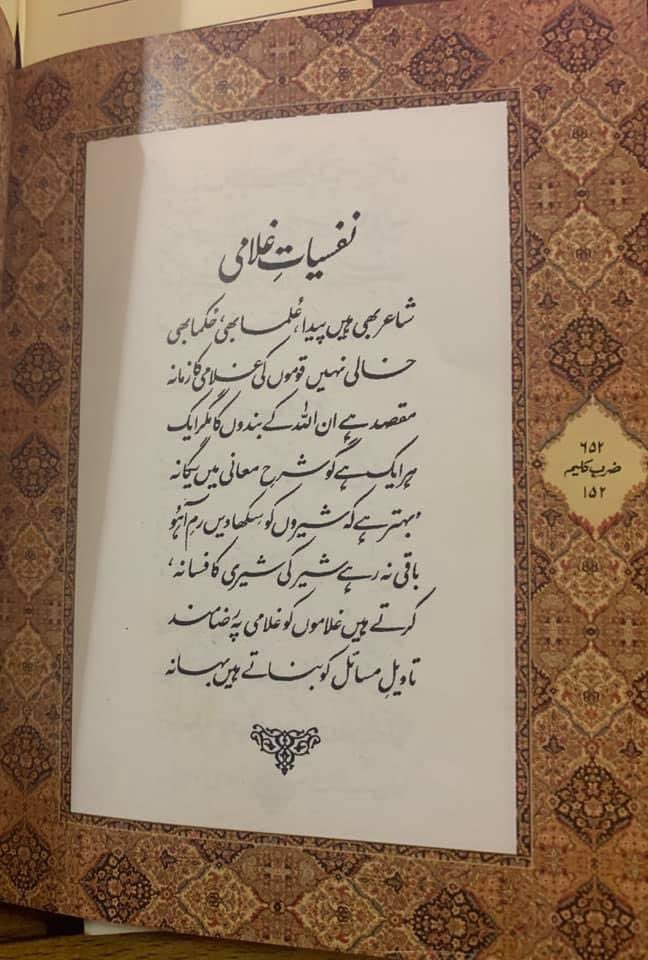 نفسیاتِ غلامی
شاعر بھی ہیں پیدا، عُلما بھی، حُکما بھی
خالی نہیں قوموں کی غلامی کا زمانہ
مقصد ہے ان اللہ کے بندوں کا مگر ایک
ہر ایک ہے گو شرحِ معانی میں یگانہ
'بہتر ہے کہ شیروں کو سِکھا دیں رمِ آہُو
باقی نہ رہے شیر کی شیری کا فسانہ'
کرتے ہیں غلاموں کو غلامی پہ رضامند
تاویلِ مسائل کو بناتے ہیں بہانہ
۶۵۲
ضربِ کلیم
۱۵۲